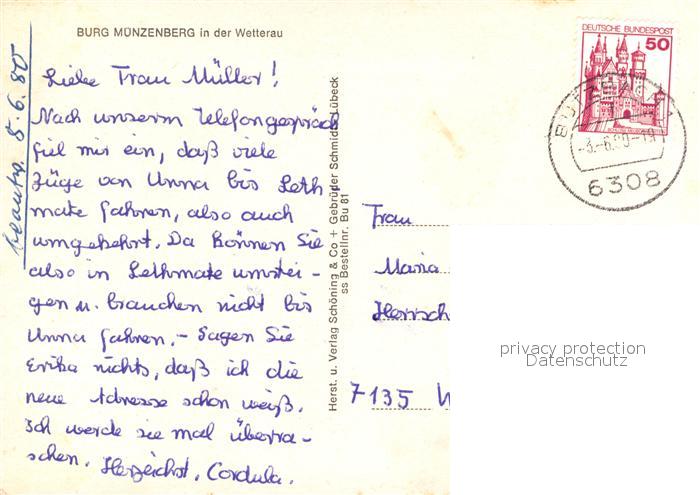 BURG MÜNZENBERG in der Wetterau
beantw. 8.6.80
Liebe Frau Müller!
Nach unserm Telefongespräch
fiel mir ein, daß viele
Züge von Unna bis Leth
mate fahren, also auch
umgekehrt. Da können Sie
also in Lethmate umstei-
gen u. brauchen nicht bis
Unna fahren. – Sagen Sie
Erika nichts, daß ich die
neue Adresse schon weiß.
Ich werde sie mal überra-
schen. Herzlichst, Cordula.
Herst. u. Verlag Schöning & Co + Gebrüder Schmidt, Lübeck
ss Bestellnr. Bu 81
DEUTSCHE BUNDESPOST
50
BUTZBACH
-3.-6.80-19
6308
Frau
Maria
Herrsch
7135 W
privacy protection
Datenschutz